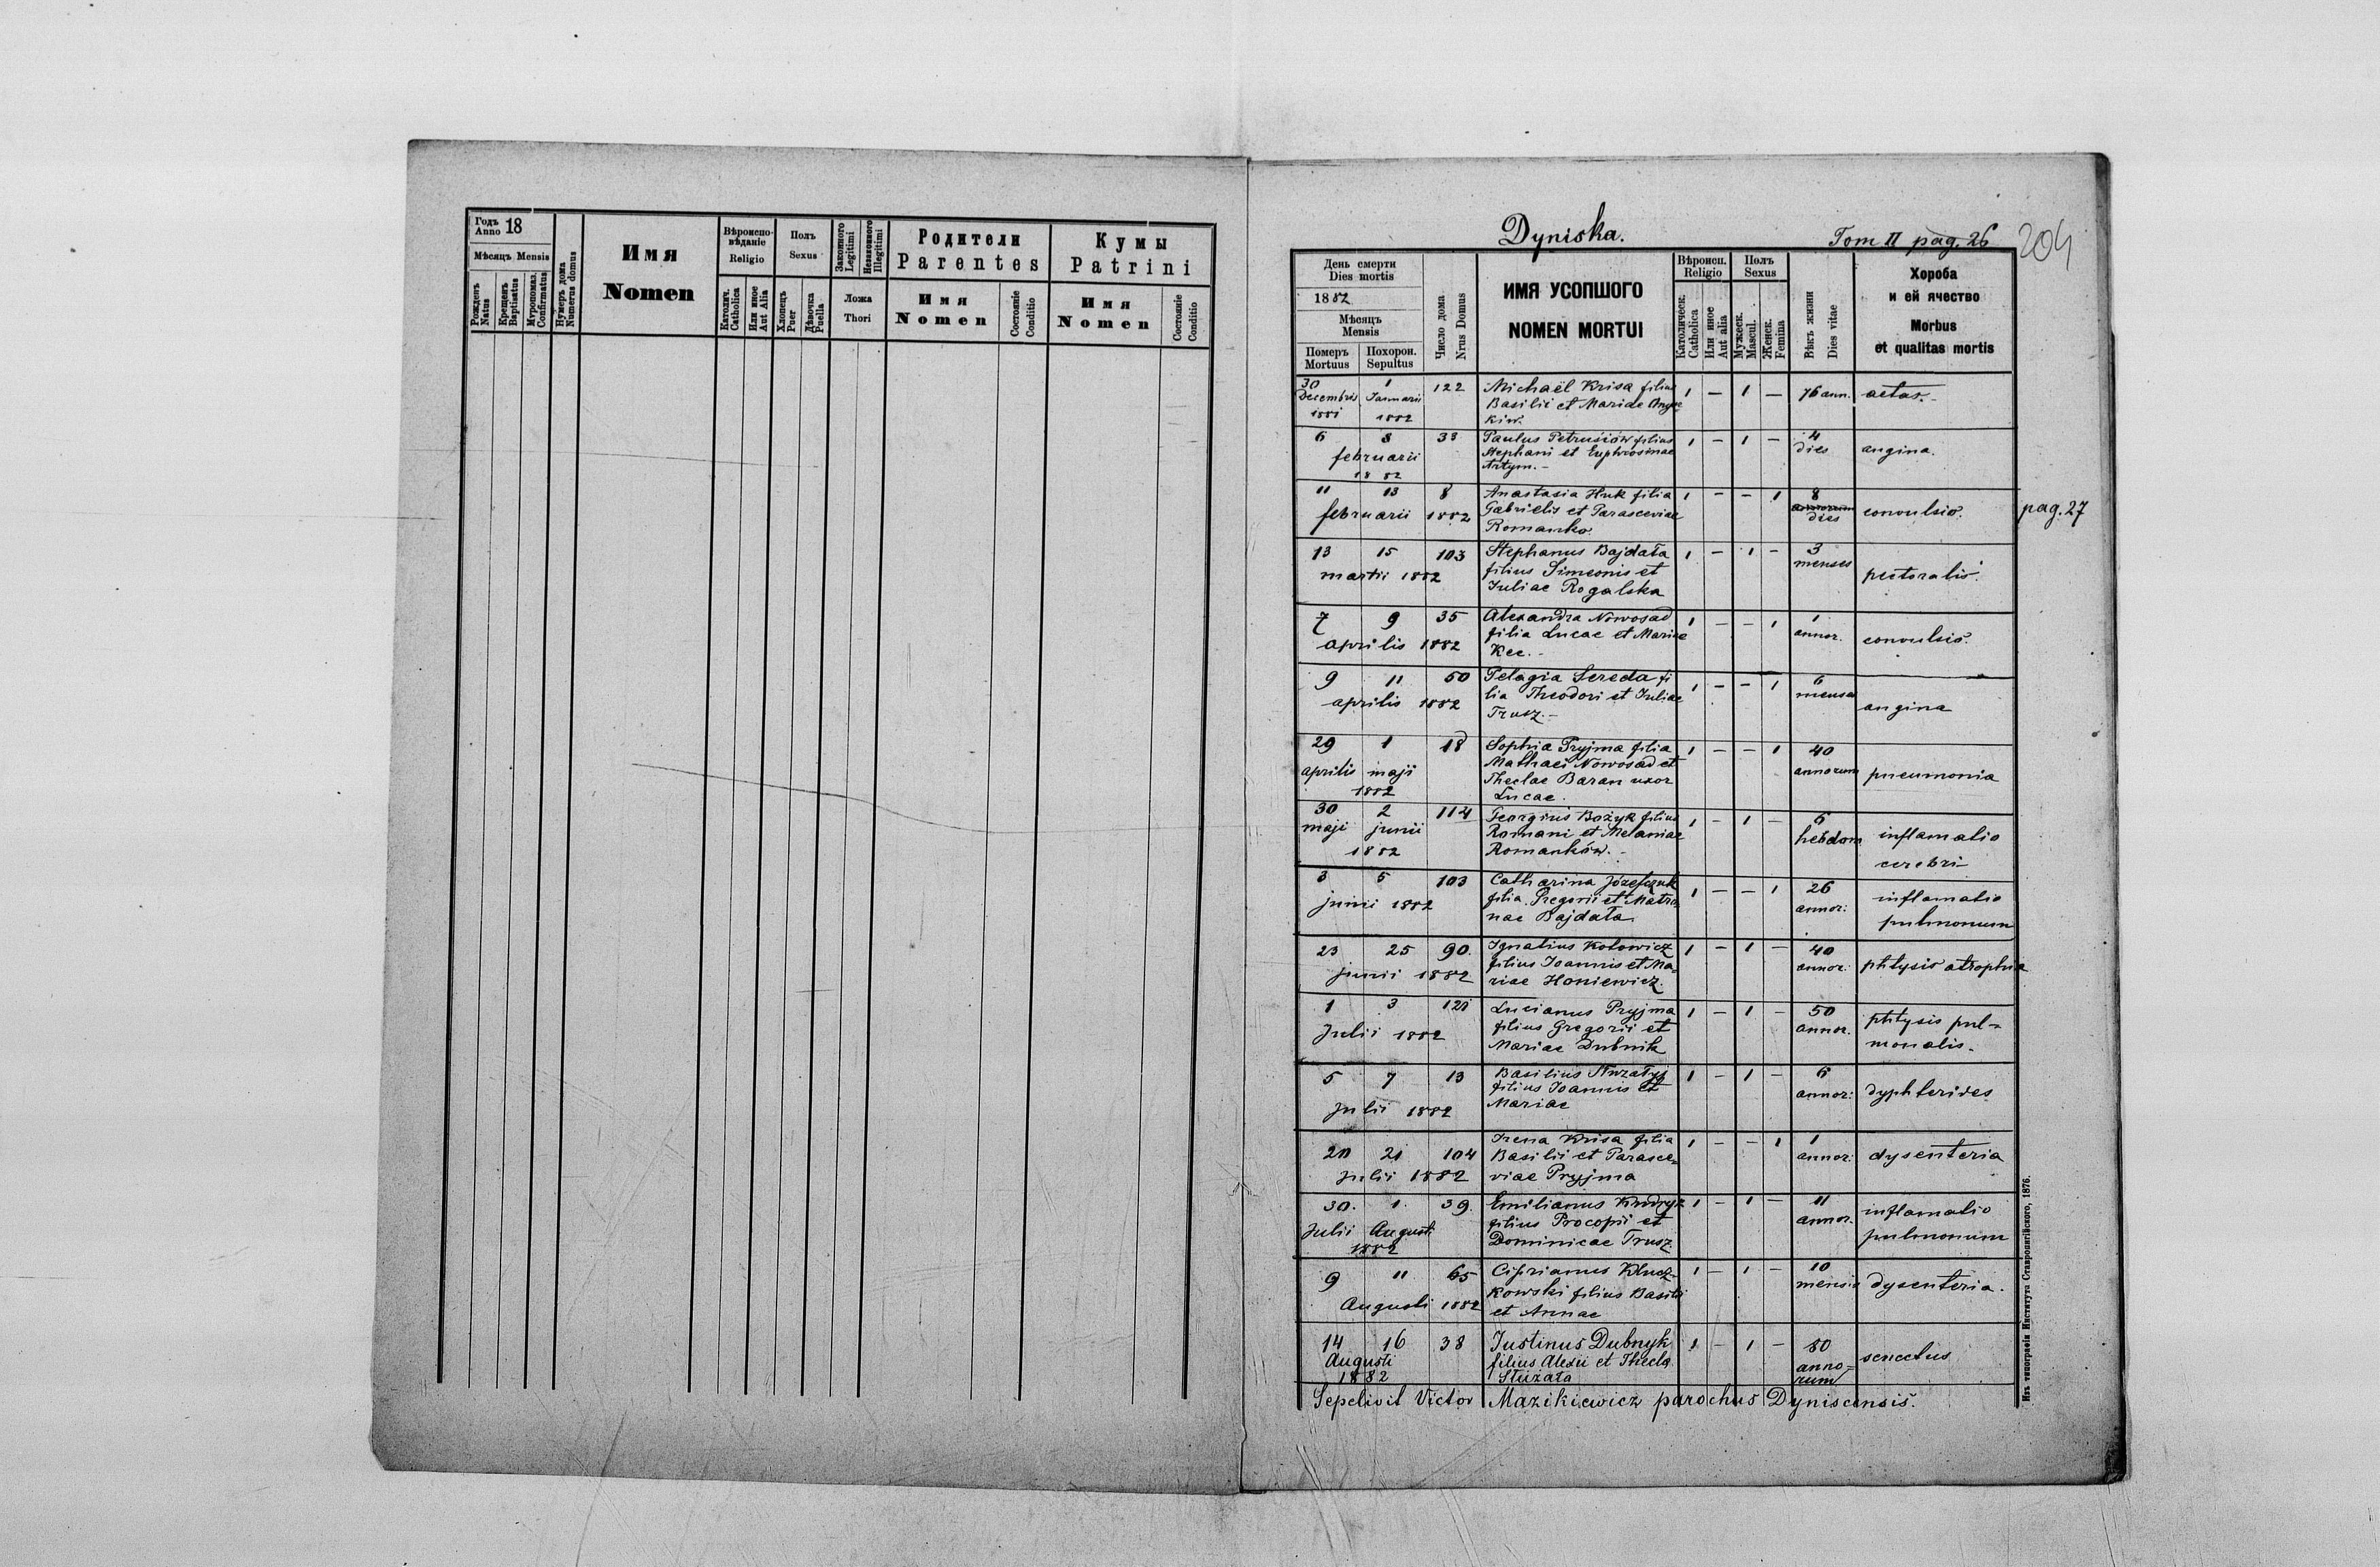 Годъ
Anno 18
Мѣсяцъ Mensis
Рожденъ
Natus
Крещенъ
Baptisatus
Мѵропомаз.
Confirmatus
Нумеръ дома
Numerus domus
Имя
Nomen
Вѣроиспо-
вѣданіе
Religio
Католич.
Catholica
Или иное
Aut Alia
Полъ
Sexus
Хлопецъ
Puer
Дѣвочка
Puella
Законного
Legitimi
Незаконного
Illegitimi
Ложа
Thori
Родители
Parentes
Имя
Nomen
Состояніе
Conditio
Кумы
Patrini
Имя
Nomen
Состояніе
Conditio
Dyniska.
Tom II pag. 26
204
День смерти
Dies mortis
1882
Мѣсяцъ
Mensis
Померъ
Mortuus
Похорон.
Sepultus
Число дома
Nrus Domus
ИМЯ УСОПШОГО
NOMEN MORTUI
Вѣроисп.
Religio
Католическ.
Catholica
Или иное
Aut alia
Полъ
Sexus
Мужеск.
Mascul.
Женск.
Femina
Вѣкъ жизни
Dies vitae
Хороба
и ей ячество
Morbus
et qualitas mortis
30 1 122 Michaël Krisa filius 1 — 1 — 76 ann. aetas.
Decembris Januarii Basilii et Mariae
1881 1882 kiw.
6 8 33 Paulus Petrusiów filius 1 — 1 — 4
februarii Stephani et Euphrosinae dies angina.
1882 Artym. -
11 13 8 Anastasia Huk filia 1 — — 1 8
februarii 1882 Gabrielis et Parasceviae annorum convulsio. pag. 27
Romanko dies
13 15 103 Stephanus Bajdała 1 — 1 — 3
martii 1882 filius Simeonis et menses pectoralis.
Juliae Rogalska
7 9 35 Alexandra Nowosad 1 — — 1 1
aprilis 1882 filia Lucae et Mariae annor. convulsio.
Kec. -
9 11 50 Pelagia Sereda fi 1 — — 1 6
aprilis 1882 lia Theodori et Juliae menses angina
Trusz. -
29 1 18 Sophia Pryjma filia 1 — — 1 40
aprilis maji Mathaei Nowosad et annorum pneumonia
1882 Theclae Baran uxor
Lucae.
30 2 114 Georgius Bożyk filius 1 — 1 — 6
maji junii Romani et Melaniae hebdom inflamatio
1882 Romanków. - cerebri
3 5 103 Catharina Józefczuk 1 — — 1 26
junii 1882 filia Gregorii et Matro annor: inflamatio
nae Bajdała pulmonum
23 25 90. Ignatius Kotowicz 1 — 1 — 40
junii 1882 filius Joannis et Ma= annor: phtysis atrophia
riae Honiewicz.
1 3 121 Lucianus Pryjma 1 — 1 — 50
Julii 1882 filius Gregorii et annor. phtysis pul=
Mariae Dubnik monalis.
5 7 13 Basilius 1 — 1 — 6
Julii 1882 filius Joannis et annor: dyphterides
Mariae
20 21 104 Irena Krisa filia 1 — — 1 1
Julii 1882 Basilii et Parasce= annor: dysenteria
viae Pryjma
30. 1. 39. Emilianus Kudryk 1 — 1 — 11
Julii Augusti filius Procopii et annor. inflamatio
1882 Dominicae Trusz. pulmonum
9 11 65 Ciprianus Klucz- 1 — 1 — 10
Augusti 1882 kowski filius Basilii mensis dysenteria.
et Annae
14 16 38 Justinus Dubnyk 1 — 1 — 80
Augusti filius Alexii et Thecla anno= senectus
1882 rum
Sepelivit Victor Mazikiewicz parochus Dyniscensis.
Изъ типографіи Института Ставропигійского, 1876.